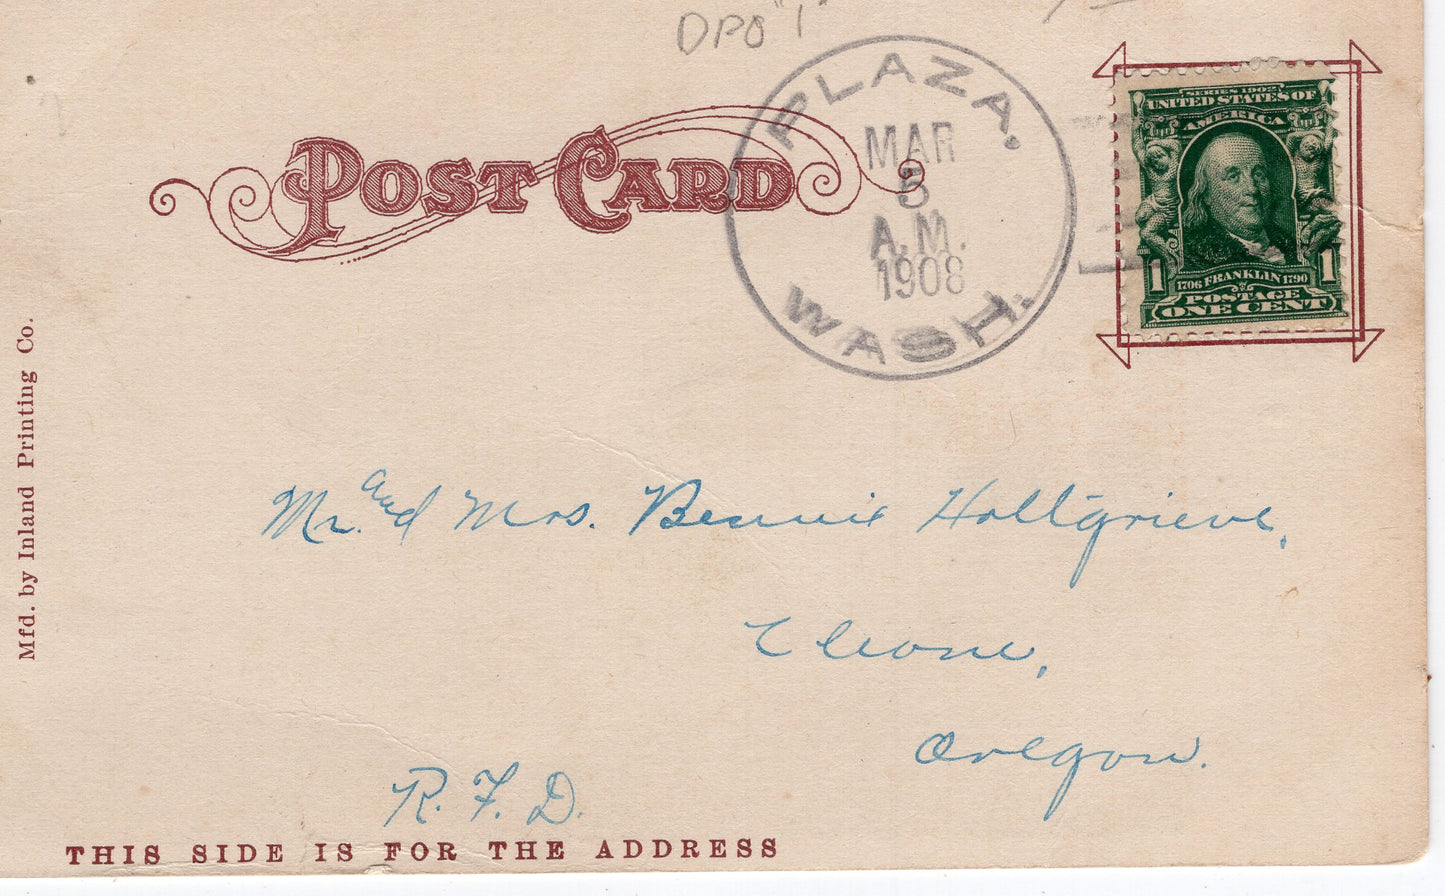 DPO "1"
POST CARD
PLAZA, WASH.
MAR
5
A.M.
1908
SERIES 1902
UNITED STATES OF
AMERICA
1 1
1706 FRANKLIN 1790
POSTAGE
ONE CENT
Mfd. by Inland Printing Co.
Mr. and Mrs. Bennie Holtgrieve,
Cleone,
Oregon.
R. F. D.
THIS SIDE IS FOR THE ADDRESS